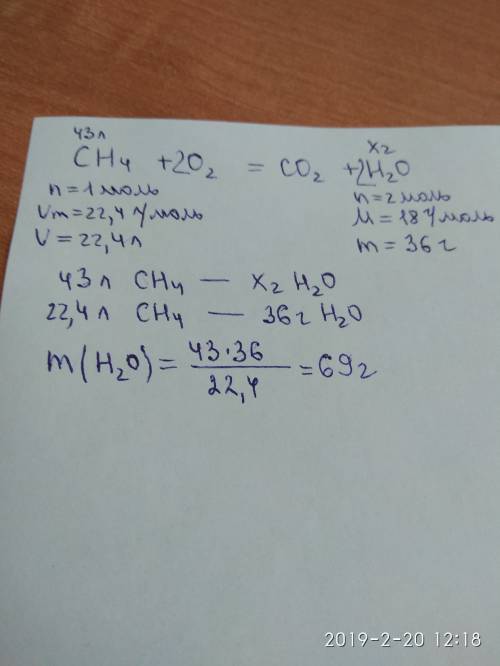 43л xг
CH₄ +2O₂ = CO₂ +2H₂O
n=1моль n=2моль
Vm=22,4 л/моль M=18 г/моль
V=22,4л m=36г
43л CH₄ — xг H₂O
22,4л CH₄ — 36г H₂O
m(H₂O)= 43·36 / 22,4 =69г
2019-2-20 12:18